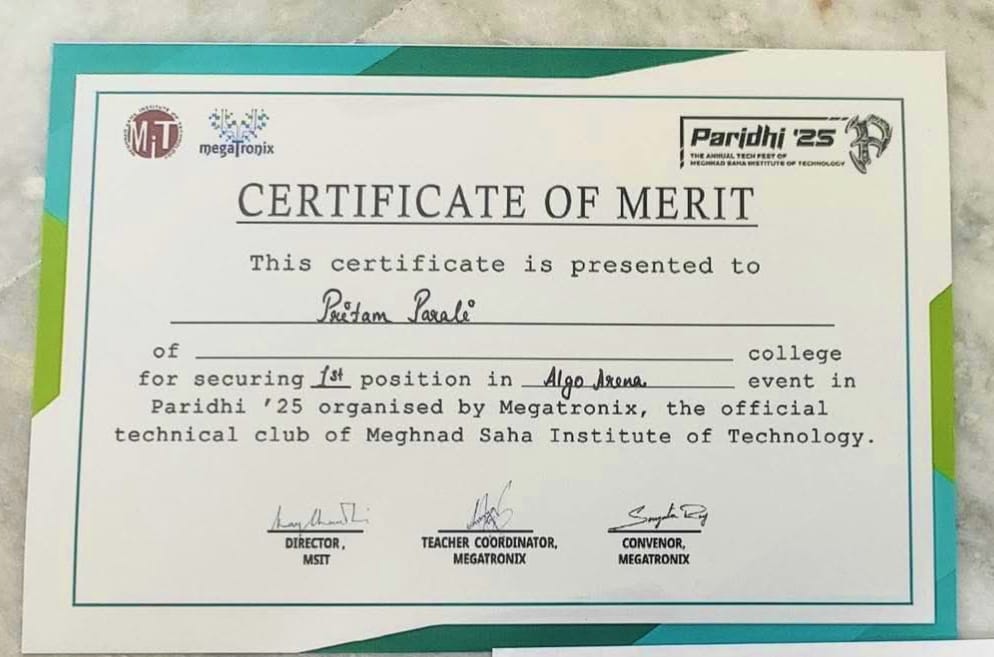 MSIT
megaTronix
Paridhi '25
THE ANNUAL TECH FEST OF
MEGHNAD SAHA INSTITUTE OF TECHNOLOGY
CERTIFICATE OF MERIT
This certificate is presented to
Pritam Parali
of college
for securing 1st position in Algo Arena event in
Paridhi '25 organised by Megatronix, the official
technical club of Meghnad Saha Institute of Technology.
DIRECTOR,
MSIT
TEACHER COORDINATOR,
MEGATRONIX
CONVENOR,
MEGATRONIX